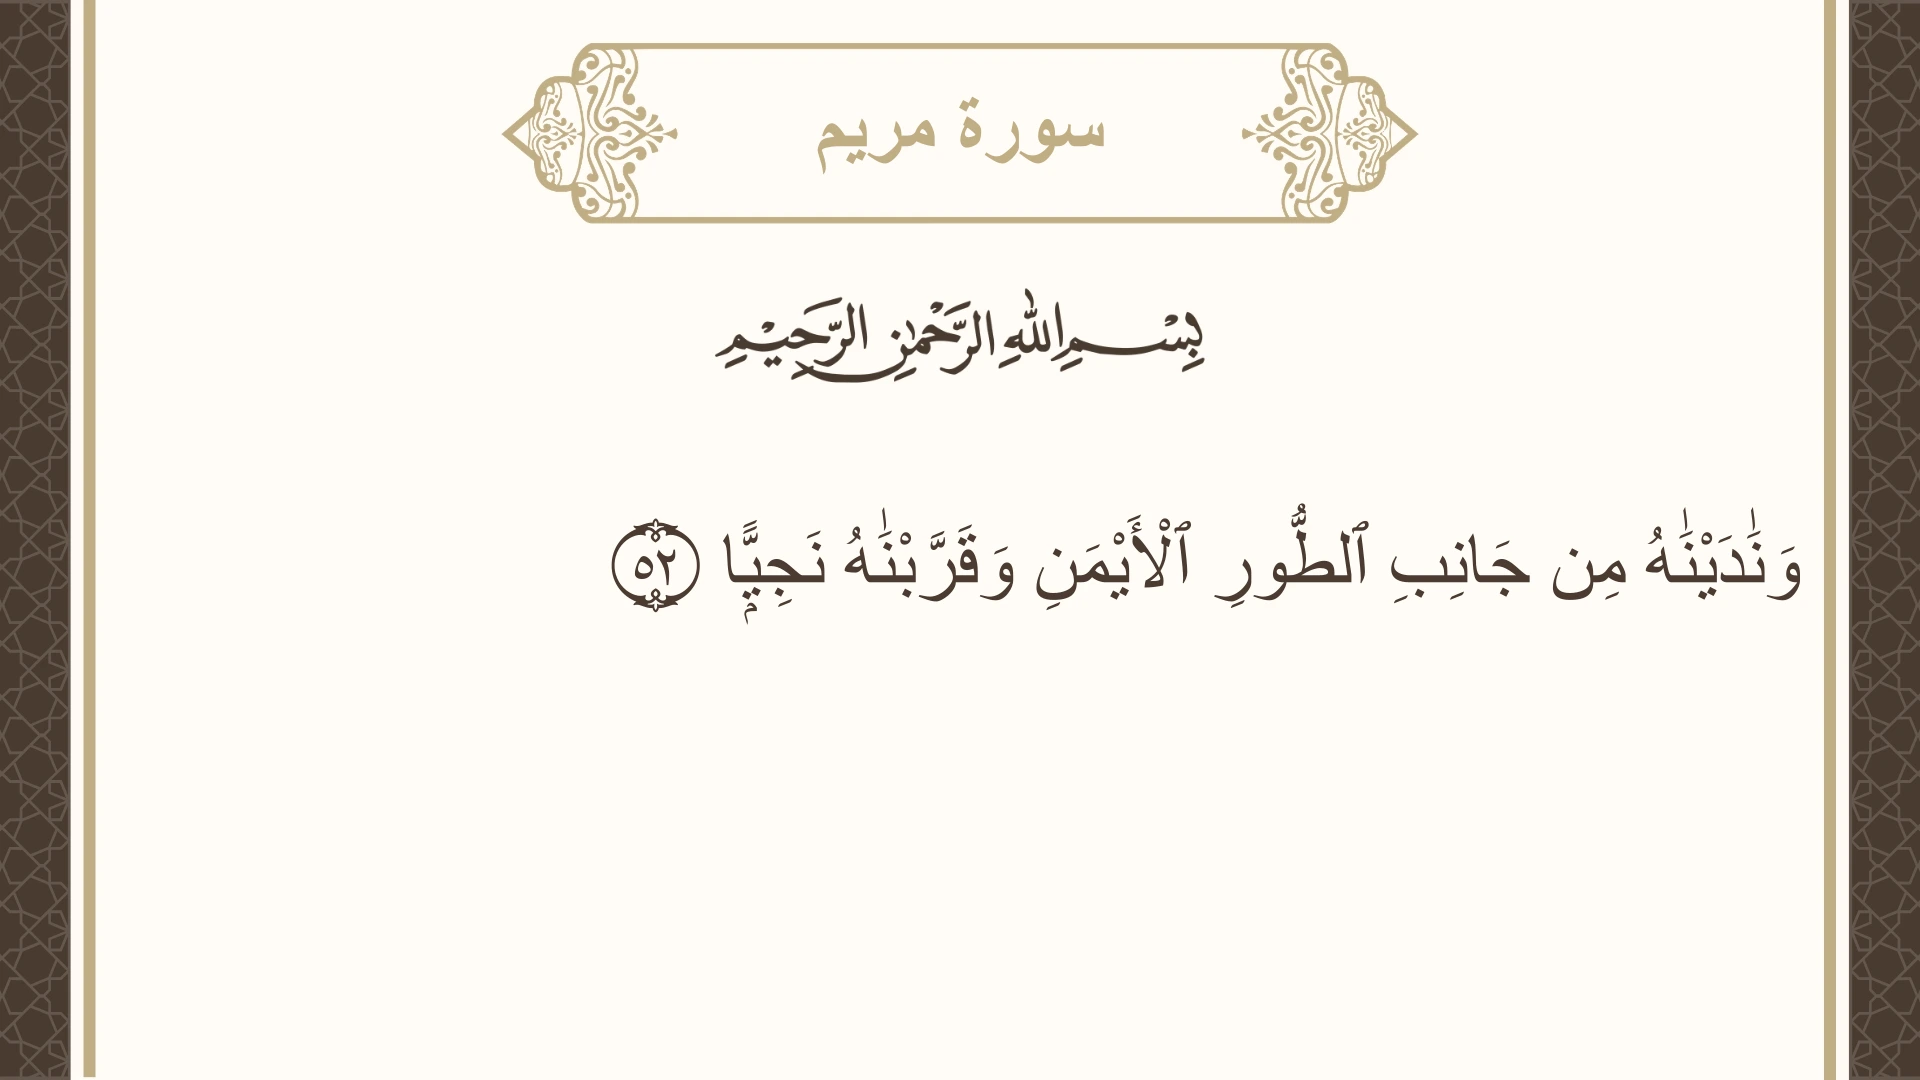 سورة مريم
بِسْمِ اللهِ الرَّحْمٰنِ الرَّحِيْمِ
وَنَٰدَيْنَٰهُ مِن جَانِبِ ٱلطُّورِ ٱلْأَيْمَنِ وَقَرَّبْنَٰهُ نَجِيًّۭا ٥٢